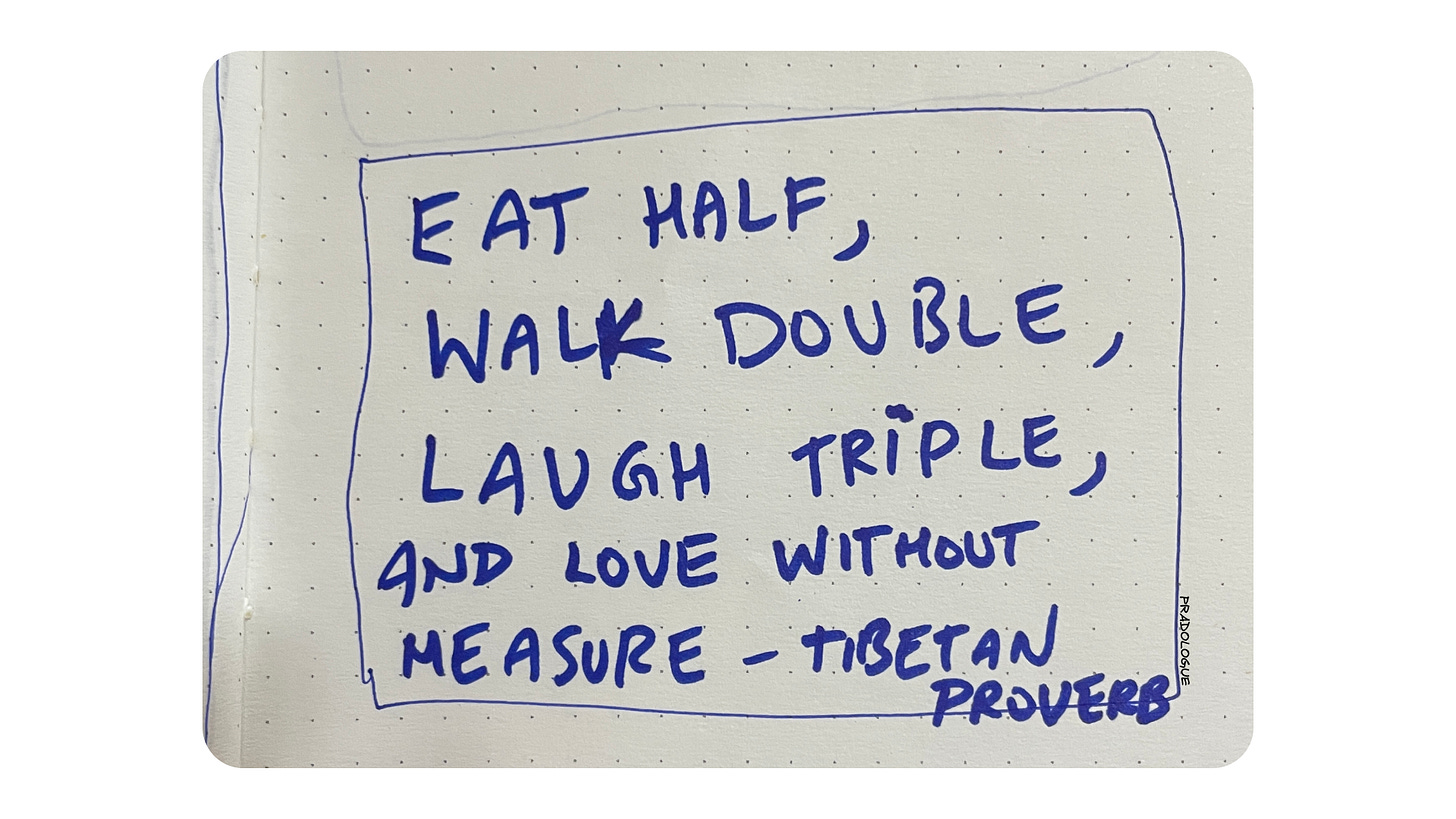 EAT HALF,
WALK DOUBLE,
LAUGH TRIPLE,
AND LOVE WITHOUT
MEASURE – TIBETAN
PROVERB
PRADOLOGUE